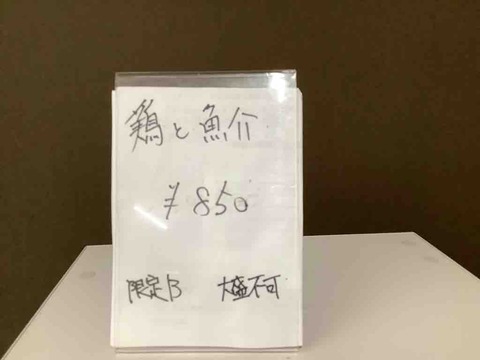 鶏と魚介
¥850
限定B 大盛不可